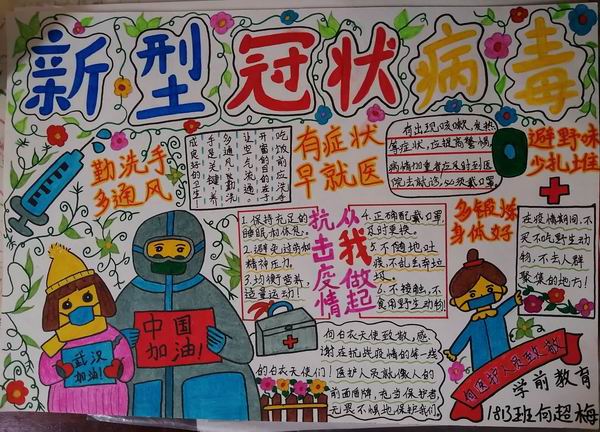 新型冠状病毒
勤洗手
多通风
吃饭前应洗手
开窗的目的在于
让空气流通。
多通风及勤洗
手是关键养
成良好的卫生
有症状
早就医
有出现,咳嗽,发热
等症状,应提高警惕,
病情切重者应及时到医
院去就诊,必须戴口罩.
避野味
少扎堆
1.保持充足的
睡眠和休息。
2.避免过劳和
精神压力。
3.均衡营养,
适量运动!
从我做起
抗击疫情
4.正确配戴口罩
及时更换。
5.不随地吐
痰不乱丢弃垃
圾。
6.不接触,不
食用野生动物
多锻炼
身体好
在疫情期间,不
买不吃野生动
物,不去人群
聚集的地方!
武汉
加油!
中国
加油!
向白衣天使致敬,感
谢在抗战疫情的第一线
的白衣天使们!医护人员就像人的
前面盾牌,充当保护者
无畏不惧地保护我们
向医护人员致敬
学前教育
1813班何超梅